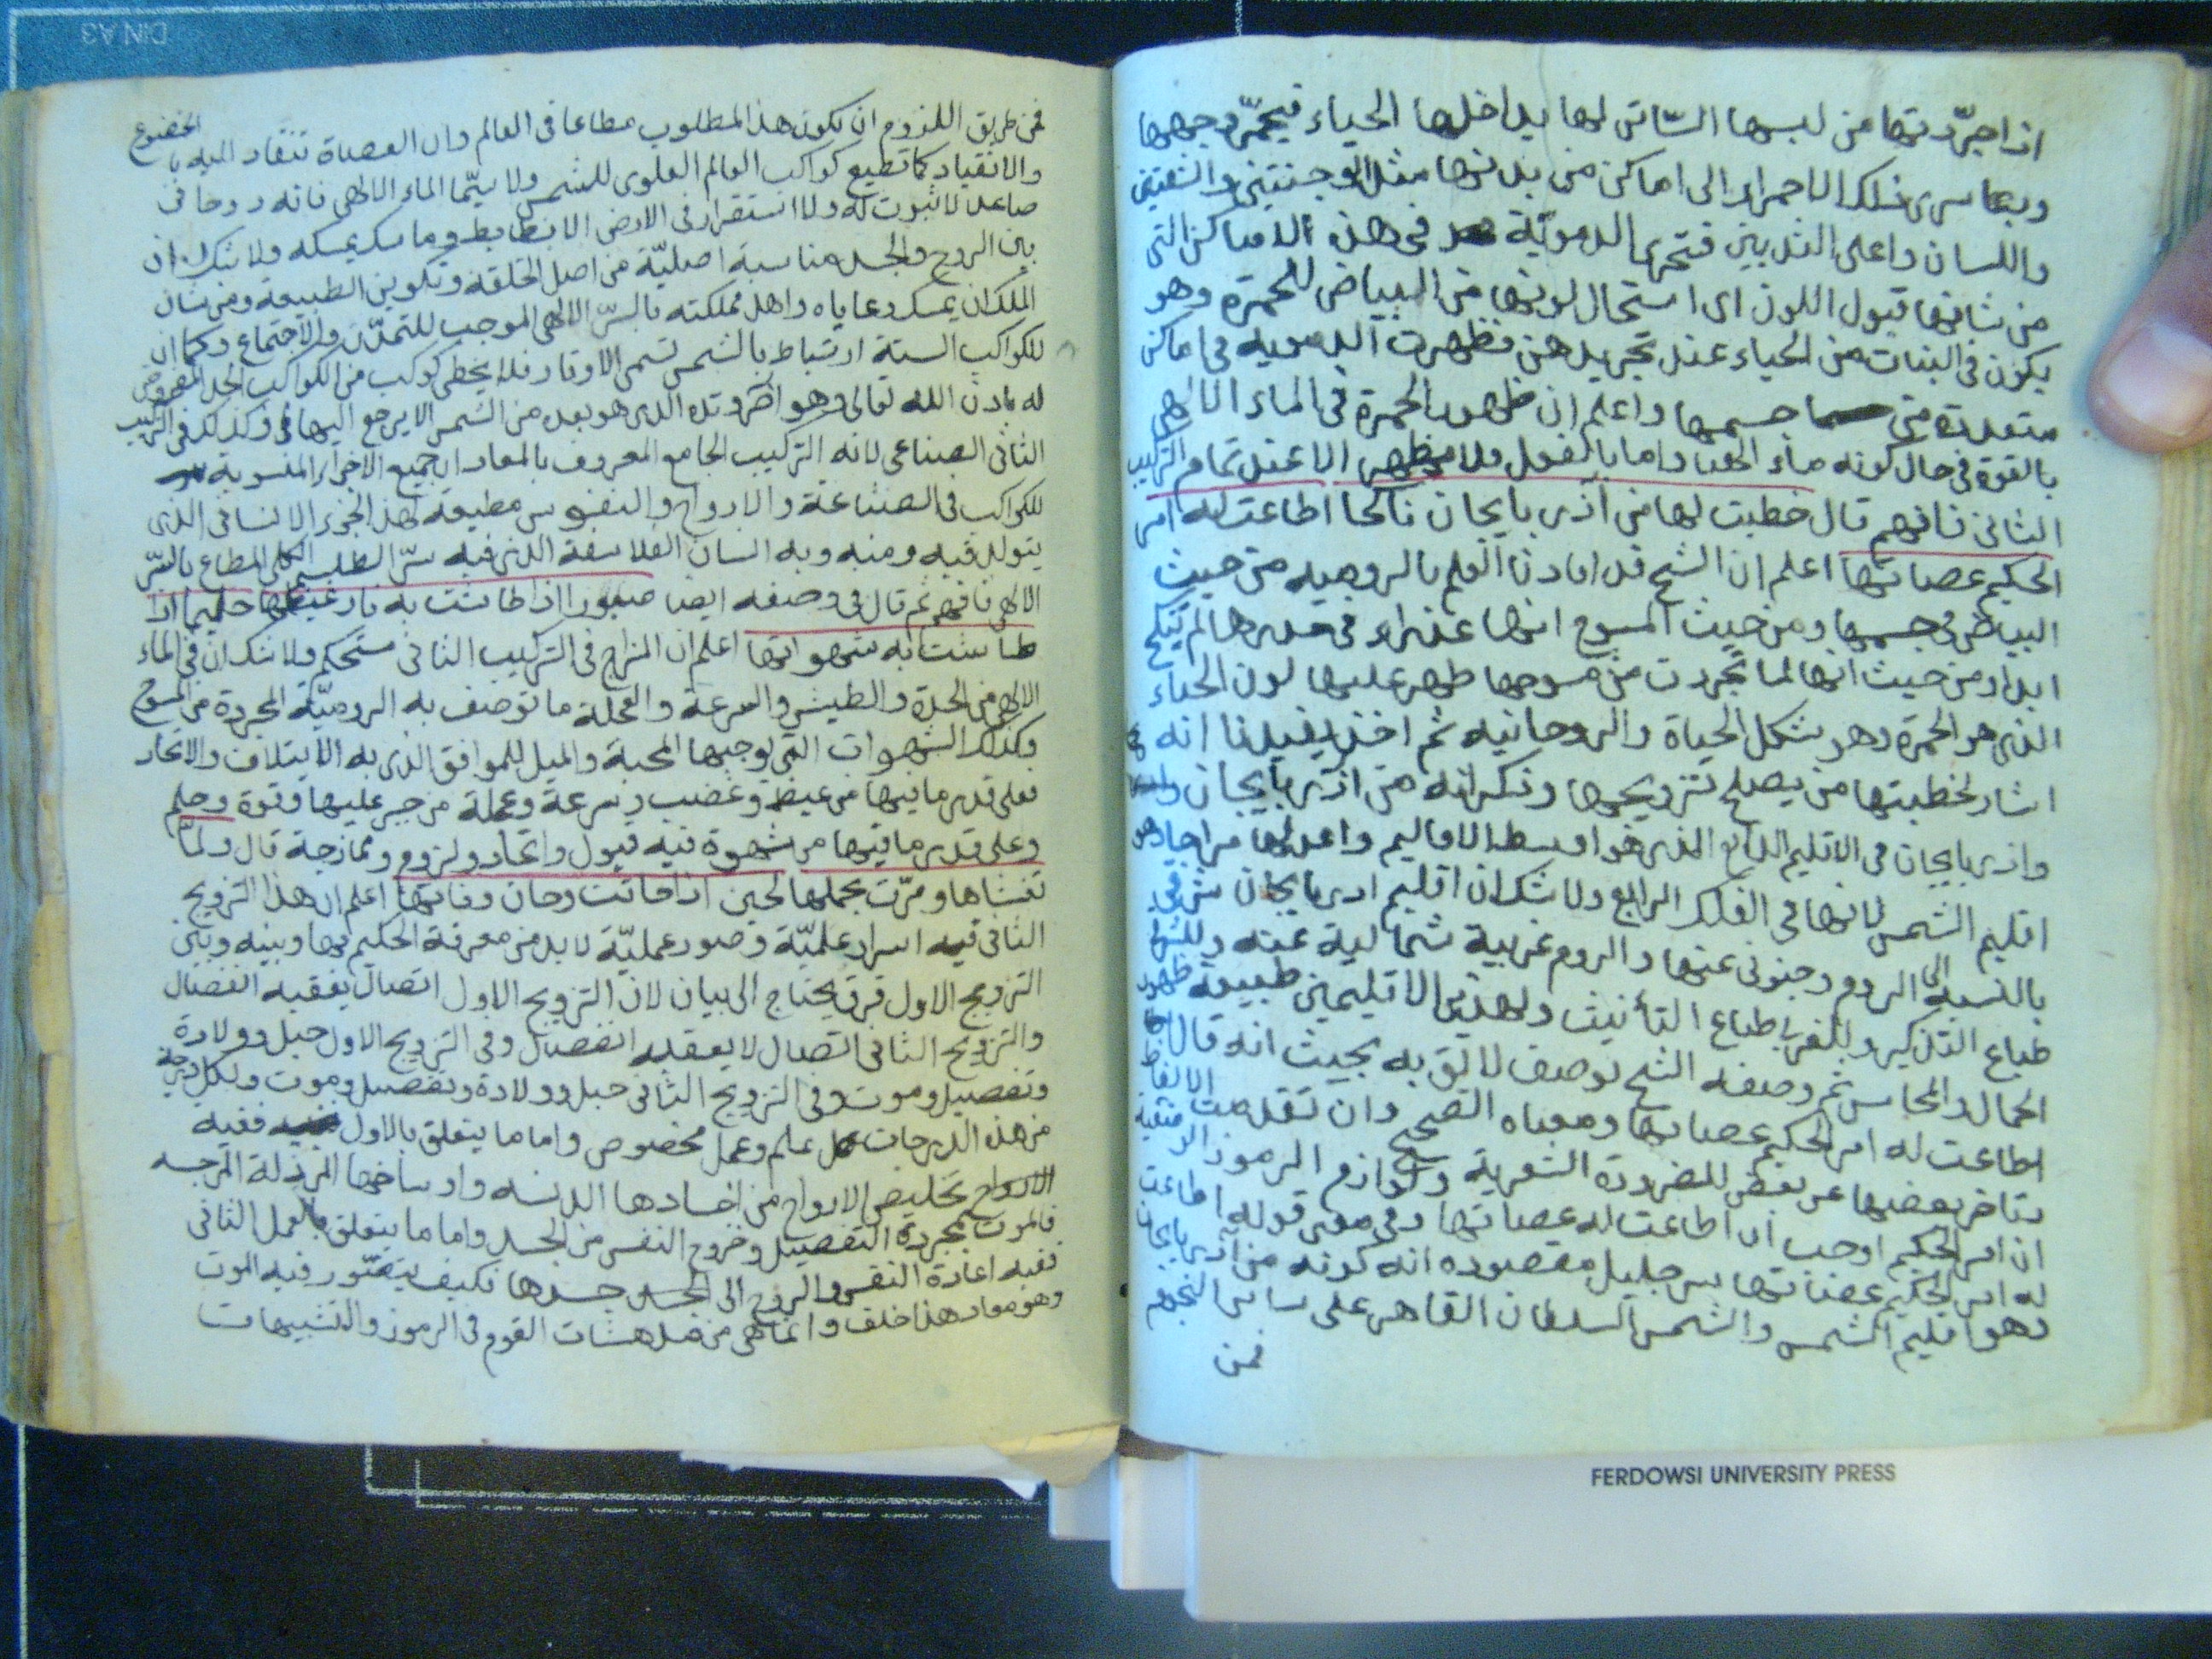 اذا جرّدتها من لبسها السّاتر لها يداخلها الحياء فيحمرّ وجهها
وبما سرى ذلك الاحمرار الى اماكن من بدنها مثل الوجنتين والشفتين
واللسان واعلى الثديين فتحمرها الدمويّة في هذه الاماكن التى
من شانها قبول اللون اى استحال لونها من البياض للحمرة وهو
يكون فى البنات من الحياء عند تجريدهن فظهرت الدموية فى اماكن
متعددة من جسمها واعلم ان ظهور الحمرة فى الماء الالهى
بالقوة فى حال كونه ماء واما بالفعل فلا يظهر الا عند تمام التركيب
الثانى فافهم قال خطبت لها من آذربايجان ناكحا اطاعت له امر
الحكيم عصاتها اعلم ان الشيخ قد افادنا العلم بالروميه من حيث
البياض فى جسمها ومن حيث المسوح انها عذراء فى خدرها لم تنكح
ابدا ومن حيث انها لما تجردت من مسوحها ظهر عليها لون الحياء
الذى هو الحمرة وهو شكل الحياة والروحانيه ثم اخذ يفيدنا انه
اشار لخطبتها من يصلح تزويجها وذكر انه من اذربايجان
واذربايجان فى الاقليم الرابع الذى هو اوسط الاقاليم واعدلها
اقليم الشمس لانها فى الفلك الرابع ولا شك ان اقليم اذربايجان شرقى
بالنسبة الى الروم وجنوبى عنها والروم غربية شمالية عنه وللشرقى
طباع التذكير وللغربى طباع التأنيث ولهذين الاقليمين طبيعة ظهور
الجمال والمحاسن ثم وصفه الشيخ بوصف لائق به بحيث انه قال
اطاعت له امر الحكيم عصاتها ومعناه الصحيح وان تقدمت الالفاظ
وتاخر بعضها عن بعض للضرورة الشعرية ولوازم الرموز
ان امر الحكيم اوجب ان اطاعت له عصاتها وفى معنى قوله اطاعت
له امر الحكيم عصاتها سر جليل مقصوده انه كونه من آذربايجان
وهو اقليم الشمس والشمس السلطان القاهر على سائر النجوم
فمن
فمن طريق اللزوم ان يكون هذا المطلوب مطاعا فى العالم وان العصاة تنقاد اليه بالخضوع
والانقياد كما تطيع كواكب العالم العلوى للشمس ولا سيّما الماء الالهى فانه روحانى
صاعد لا ثبوت له ولا استقرار فى الارض الا بضابط وماسك يمسكه ولا شك ان
بين الروح والجسد مناسبة اصليّة من اصل الخلقة وتكوين الطبيعة ومن شان
الملك ان يمسك رعاياه واهل مملكته بالسرّ الالهى الموجب للتمدّن والاجتماع وكما ان
للكواكب الستة ارتباط بالشمس تسمى الاوتار فلا يخطى كوكب من الكواكب الحد المفروض
له باذن الله تعالى وهو آخر وتده الذى هو بعده من الشمس الا يرجع اليها وكذلك فى التركيب
الثانى الصناعى لانه التركيب الجامع المعروف بالمعاد ان جميع الاجزاء المنسوبة
للكواكب فى الصناعة والارواح والنفوس مطيعة لهذا الجزء الانسانى الذى
يتولد فيه ومنه وبه انسان الفلاسفة الذى فيه سرّ الطلسم الكلى المطاع بالسّر
الالهى فافهم ثم قال فى وصفه ايضا صبورا اذا طاشت به نار غيظها حليما اذا
طاشت به شهواتها اعلم ان المزاج فى التركيب الثانى مستحكم ولا شك ان فى الماء
الالهى من الحدة والطيش والسرعة والعجلة ما توصف به الروميّة المجردة من المسوح
وكذلك الشهوات التى توجبها المحبة والميل للموافق الذى به الايتلاف والاتحاد
فعلى قدر ما فيها من غيظ وغضب وسرعة وعجلة من جبر عليها وقوة وحلم
وعلى قدر ما فيها من شهوة فيه قبول واتحاد ولزوم وممازجة قال ولمّا
تغشاها ومرّت بحملها لحين اذا ماتت وحان وفاتها اعلم ان هذا التزويج
الثانى فيه اسرار علميّة وصور عمليّة لا بد من معرفة الحكيم بها وبينه وبين
التزويج الاول فرق يحتاج الى بيان لان التزويج الاول اتصال يعقبه انفصال
والتزويج الثانى اتصال لا يعقبه انفصال وفى التزويج الاول حبل وولادة
وتفصيل وموت وفى التزويج الثانى حبل وولادة وتفصيل وموت ولكل درجة
من هذه الدرجات علم وعمل مخصوص واما ما يتعلق بالاول ففيه
تخليص الارواح من اجسادها الدنسه واوساخها المرذلة
فالموت مجردة التفصيل وخروج النفس من الجسد واما ما يتعلق بالعمل الثانى
ففيه اعادة النفس والروح الى جسدها فكيف يتصّور فيه الموت
وهو معاد هذا خلف وانما هى من مدهشات القوم فى الرموز والتشبيهات
FERDOWSI UNIVERSITY PRESS
DIN A3